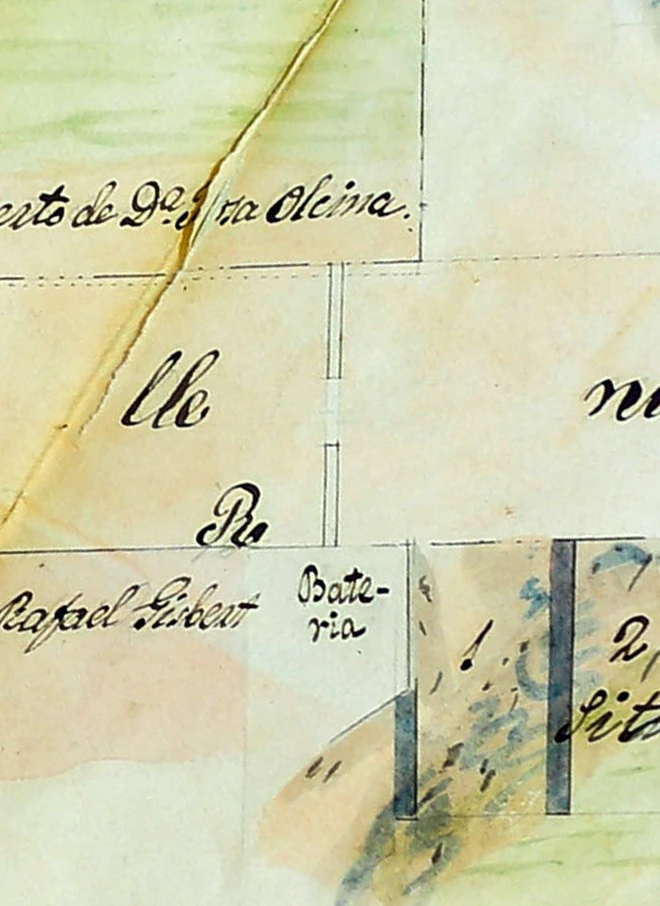 erto de Dª. Rosa Olcina.
lle
Rafael Gisbert
Bate-
ria
1
2,